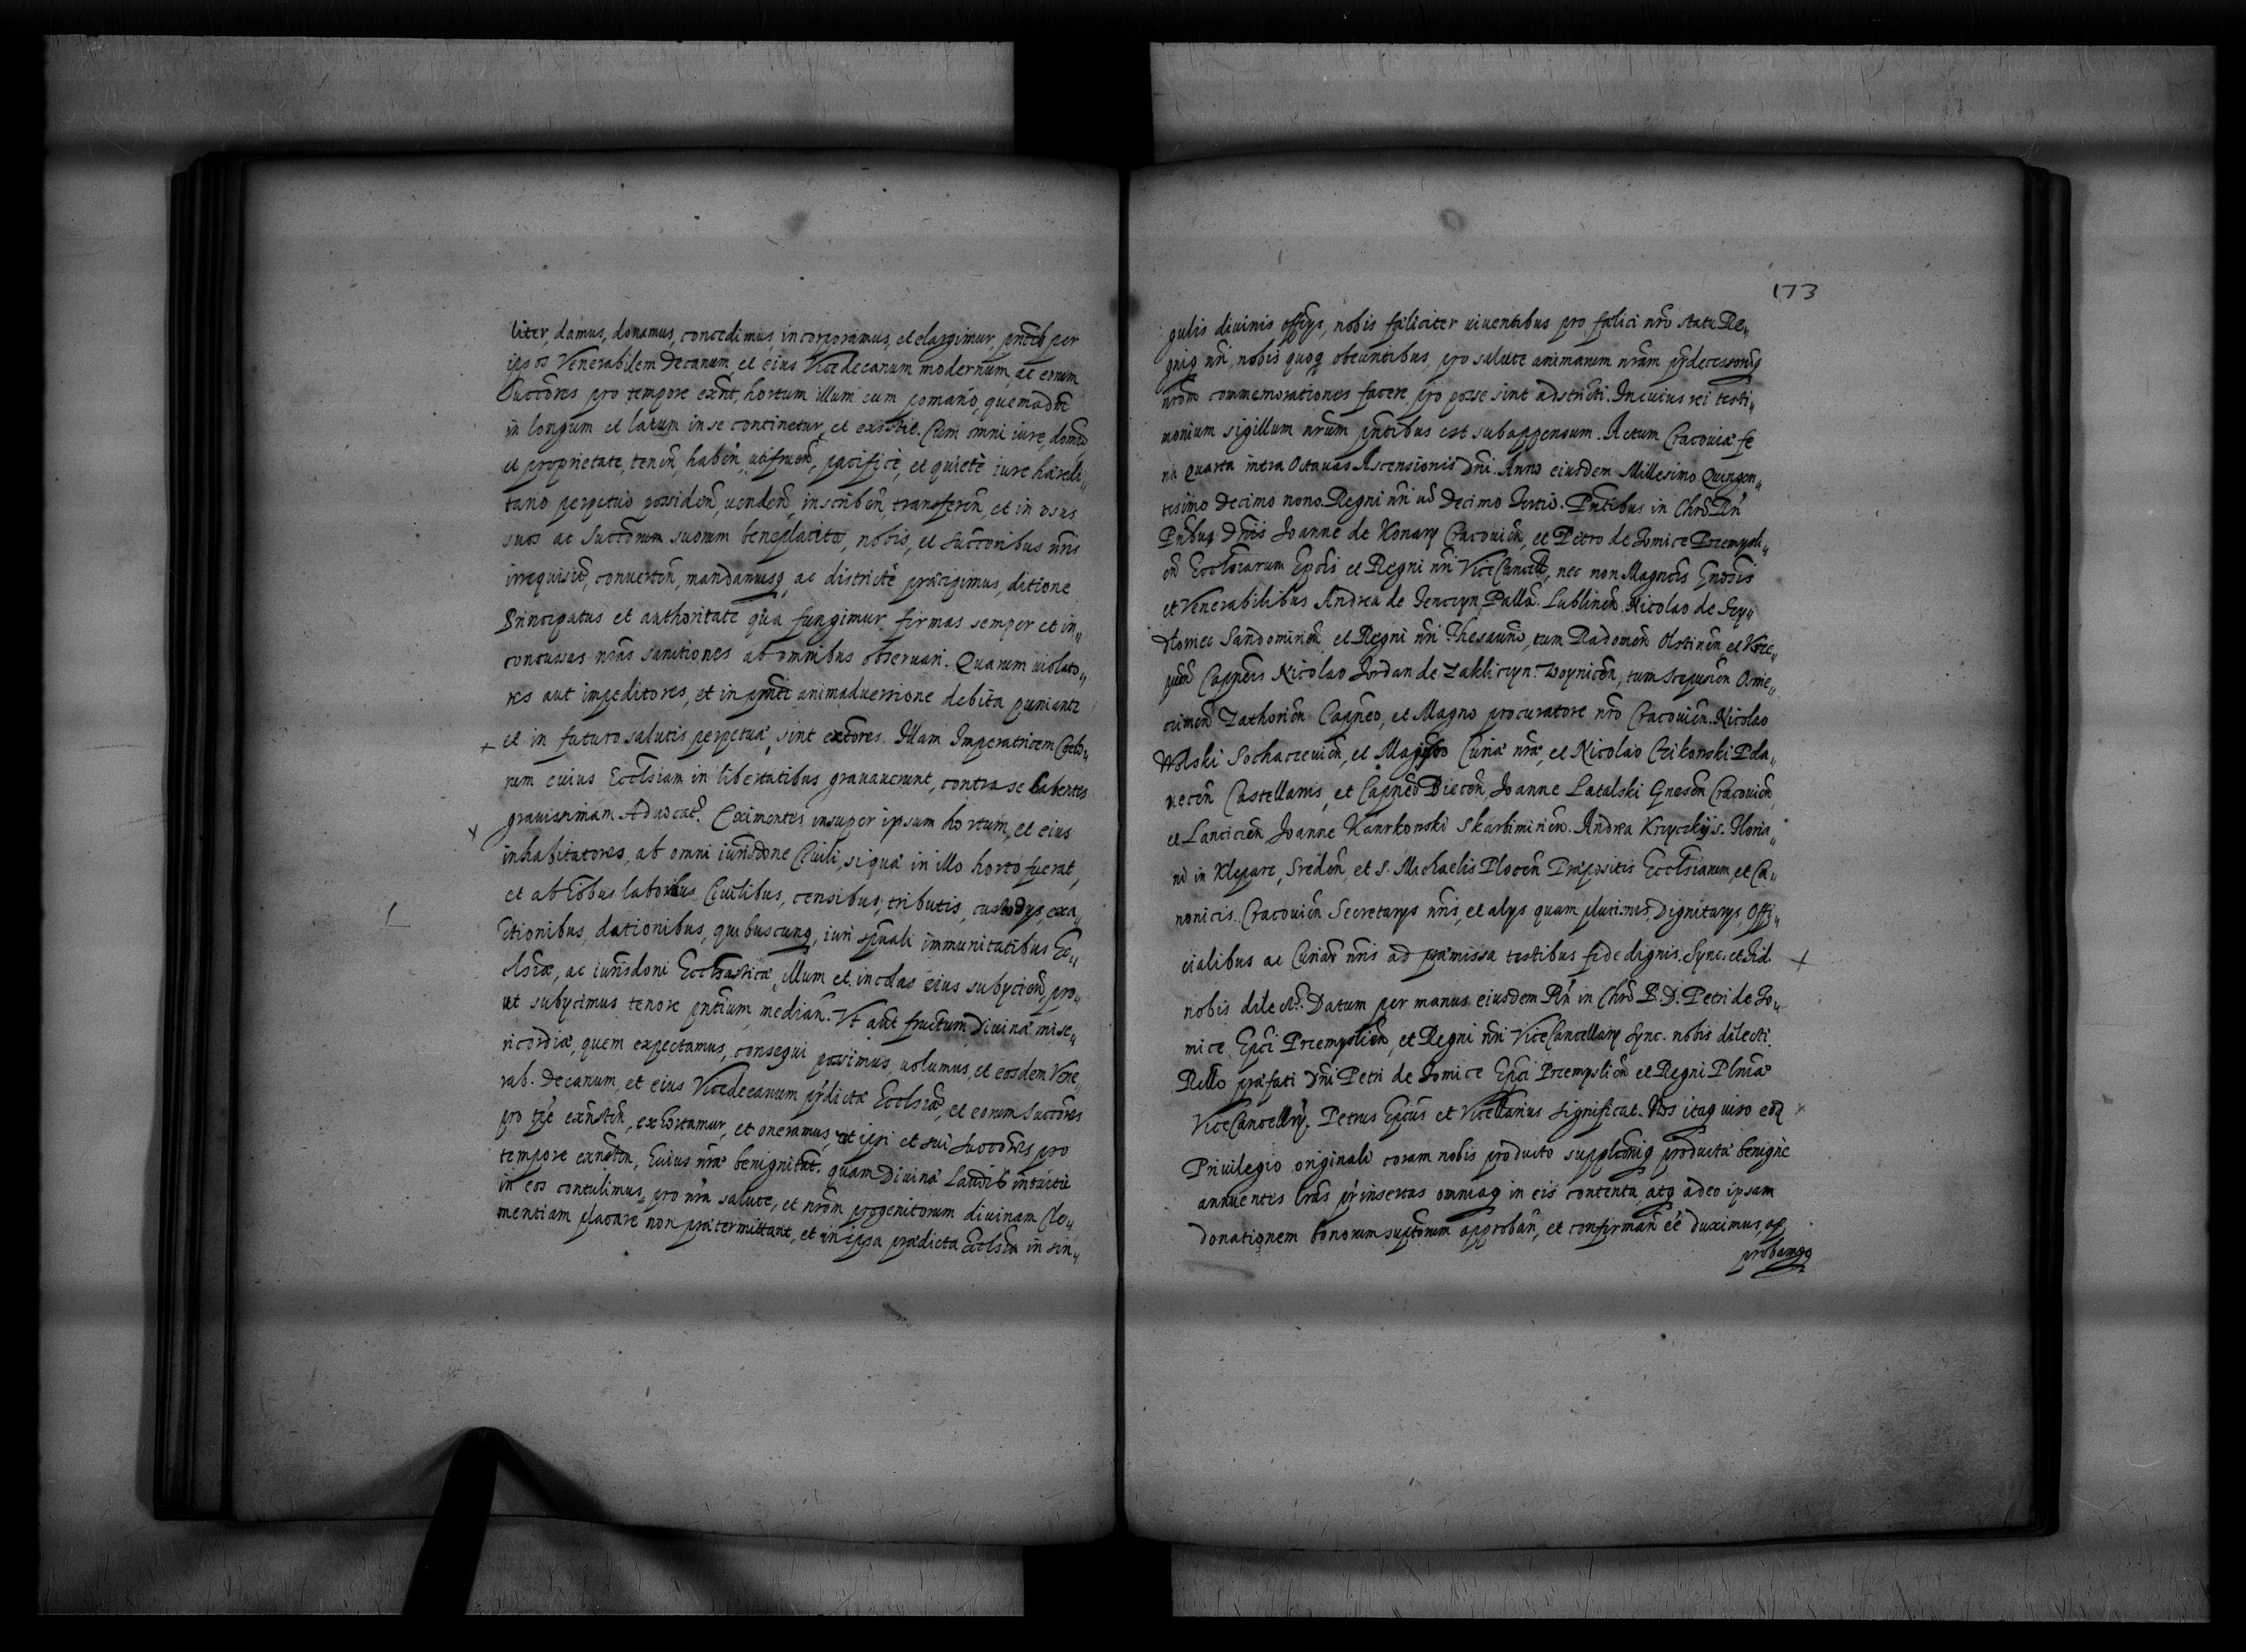 liter damus, donamus, concedimus, incorporamus, et elargimur, pntib per
ipsos Venerabilem Decanum, et eius Vicedecanum modernum, ac eorum
Succores pro tempore exnt, hortum illum cum pomario, quemadm
in longum et latum in se continetur, et existit. Cum omni iure, domio
et proprietate, tenen, haben, utifruen, pacifice, et quiete iure haeredi„
tario perpetuo possiden, venden, inscriben, transferen, et in usus
suos ac Succorum suorum beneplacito, nobis, et succoribus nris
irrequisit, converten, mandamusq, ac districte praecipimus, ditione
Principatus et authoritate qua fungimur firmas semper et in„
concussas nras sanctiones ab omnibus observari. Quarum violato„
res aut impeditores, et in pnti animadversione debita puniantr
et in futuro salutis perpetuae, sint extores. Illam Imperatricem Coelo„
rum cuius Ecclsiam in libertatibus gravaverunt, contra se habentes
gravissimam Advocat. Eximentes insuper ipsum hortum, et eius
inhabitatores, ab omni iurisdone Civili, si qua in illo horto fuerat,
et ab oibus laboribus Civilibus, censibus, tributis, custodys, exa„
ctionibus, dationibus, quibuscunq, iuri spuali immunitatibus Ec„
clsiae, ac iurisdoni Ecclsiasticae, illum et incolas eius subycien, pro„
ut subycimus tenore pntium median. Ut aut fructum Divinae mise„
ricordiae, quem expectamus, consegui possimus, volumus, et eosdem Vene„
rab. Decanum, et eius Vicedecanum prdictae Ecclsiae, et eorum Succores
pro tpe existen, exhortamur, et oneramus, ut ipsi et sui succores pro
tempore existen, huius nrae benignitat. quam Divinae Laudis intuitu
in eos contulimus, pro nra salute, et nrom progenitorum divinam Cle„
mentiam placare non praetermittant, et in ipsa praedicta Ecclsia in sin„
173
gulis divinis offcys, nobis faeliciter viventibus pro faelici nro statu Re„
gniq nri, nobis quoq obeuntibus, pro salute animarum nram prdecessorumq
nrom commemorationes facere pro posse sint adstricti. In cuius rei testi„
monium sigillum nrum pntibus est subappensum. Actum Cracoviae fe
ria quarta intra Octavas Ascensionis Dni. Anno eiusdem Millesimo Quingen„
tesimo Decimo nono. Regni nri vo Decimo Tertio. Pntibus in Chro Rn
Pribus Dnis Joanne de Konary Cracovien, et Petro de Tomice Praemysli„
en Ecclsiarum Epcis et Regni nri ViceCancell, nec non Magncis Gnosis
et Venerabilibus Andrea de Tenczyn, Palla. Lublinen. Nicolao de Szy„
dlowiec Sandomirien, et Regni nri Thesaurio, tum Radomen Olstinen, et
Capneis Nicolao Jordan de Zakliczyn. Woynicen, tum Scepusien Oswie„
cimen Zathorien Capneo, et Magno procuratore nro Cracovien. Nicolao
Wolski Sochaczevien, et Magistro Curiae nrae, et Nicolao Czikowski Pola„
necen Castellanis, et Capneo Diecen, Joanne Latalski Gnesen Cracovien,
et Lancicien, Joanne Karnkowski Skarbimirien. Andrea Krzyczki S. Floria„
ni in Klepare, Sreden, et S. Michaelis Plocen Praepositis Ecclsiarum, et Ca„
nonicis. Cracovien Secretarys nris, et alys quam plurimis, Dignitarys, Offi„
cialibus ac Curian nris ad praemissa testibus fide dignis. Sync. et Fid.
nobis dilect. Datum per manus eiusdem Rn in Chro P. D. Petri de To„
mice, Epci Praemyslien, et Regni nri ViceCancellary Sync. nobis dilecti.
Rello praefati Dni Petri de Tomice Epci Praemyslien et Regni Plniae
ViceCancellry. Petrus Epcus et Vicecllarius significat. Nos itaq viso eoq
Privilegio originali coram nobis producto suppltioniq producta benigne
annuentes lras prinsertas omniaq in eis contenta, atq adeo ipsam
donationem bonorum suptorum approban, et confirman ee duximus, ap
probamqq